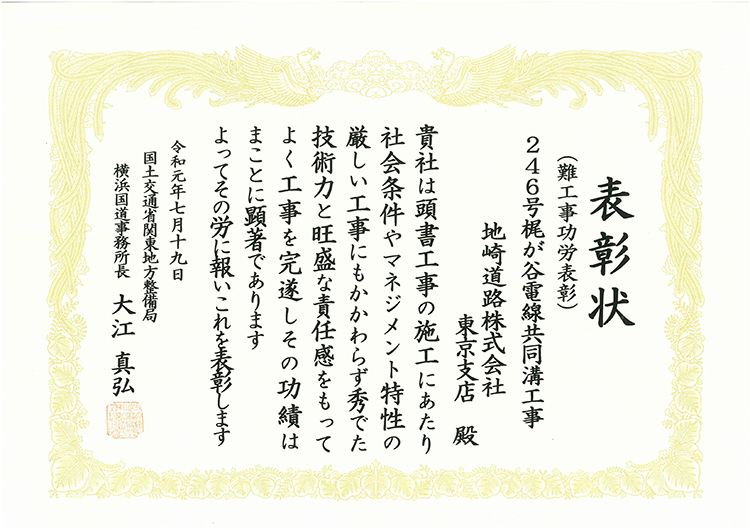 表彰状
（難工事功労表彰）
２４６号梶が谷電線共同溝工事
地崎道路株式会社
東京支店 殿
貴社は頭書工事の施工にあたり
社会条件やマネジメント特性の
厳しい工事にもかかわらず秀でた
技術力と旺盛な責任感をもって
よく工事を完遂しその功績は
まことに顕著であります
よってその労に報いこれを表彰します
令和元年七月十九日
国土交通省関東地方整備局
横浜国道事務所長 大江 真弘